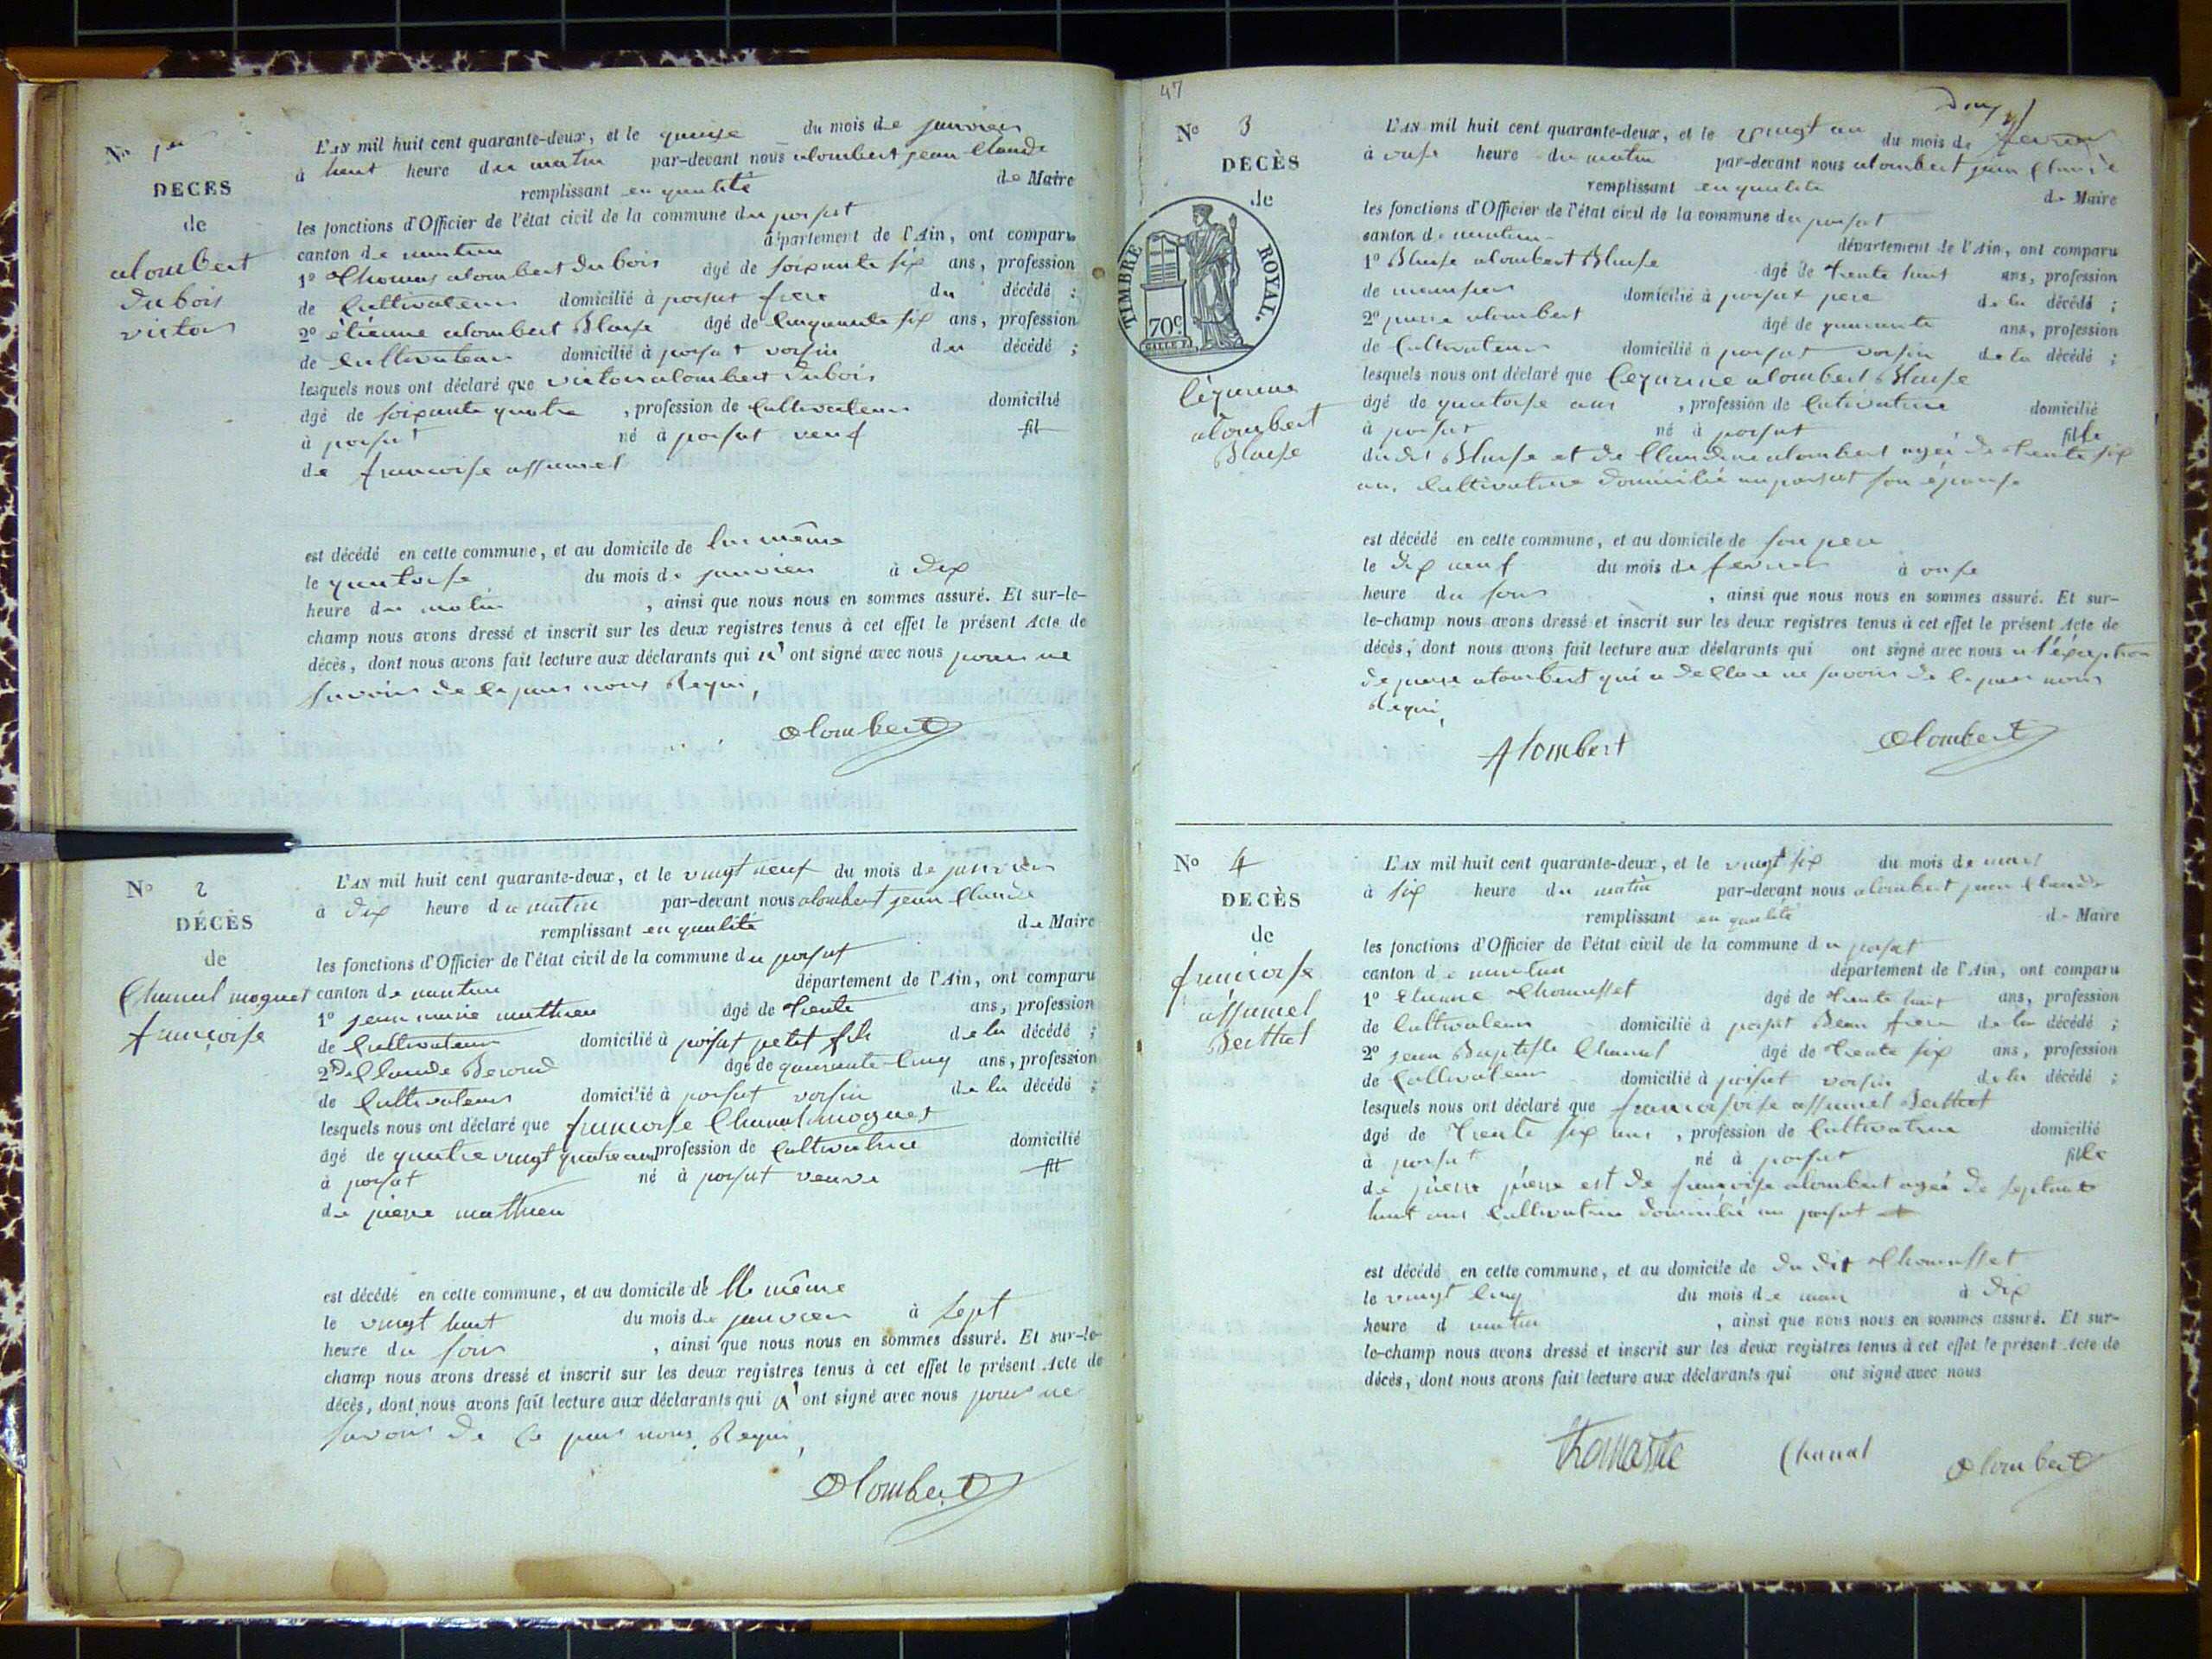 No 1er
DECES
de
alombert
dubois
victor
L'AN mil huit cent quarante-deux, et le quinze du mois de janvier
à huit heure du matin par-devant nous alombert jean Claude
remplissant en qualité de Maire
les fonctions d'Officier de l'état civil de la commune du poisat
canton de nantua département de l'Ain, ont comparu
1° Thomas alombert dubois âgé de soixante six ans, profession
de Cultivateur domicilié à poisat frere du décédé ;
2° étienne alombert Blaise âgé de Cinquante six ans, profession
de Cultivateur domicilié à poisat voisin du décédé ;
lesquels nous ont déclaré que victor alombert dubois
âgé de soixante quatre , profession de Cultivateur domicilié
à poisat né à poisat veuf fil
de francoise assumel
est décédé en cette commune, et au domicile de lui même
le quatorse du mois de janvier à dix
heure du matin , ainsi que nous nous en sommes assuré. Et sur-le-
champ nous avons dressé et inscrit sur les deux registres tenus à cet effet le présent Acte de
décès, dont nous avons fait lecture aux déclarants qui n'ont signé avec nous pour ne
savoir de ce faire nous Requi,
alombert
No 2
DÉCÈS
de
Chanal moguet
françoise
L'AN mil huit cent quarante-deux, et le vingt neuf du mois de janvier
à dix heure du matin par-devant nous alombert jean Claude
remplissant en qualité de Maire
les fonctions d'Officier de l'état civil de la commune du poisat
canton de nantua département de l'Ain, ont comparu
1° jean marie mathieu âgé de trente ans, profession
de Cultivateur domicilié à poisat petit fils de la décédé ;
2° Claude Beroud âgé de quarante-Cinq ans, profession
de Cultivateur domicilié à poisat voisin de la décédé ;
lesquels nous ont déclaré que francoise Chanal moguet
âgé de quatre vingt quatre ans profession de Cultivatrice domicilié
à poisat né à poisat veuve fil
de pierre mathieu
est décédé en cette commune, et au domicile de lle même
le vingt huit du mois de janvier à sept
heure du soir , ainsi que nous nous en sommes assuré. Et sur-le-
champ nous avons dressé et inscrit sur les deux registres tenus à cet effet le présent Acte de
décès, dont nous avons fait lecture aux déclarants qui n'ont signé avec nous pour ne
savoir de ce faire nous Requi,
alombert
47
No 3
DECÈS
de
TIMBRE ROYAL.
70c
Cézarine
alombert
Blaise
L'AN mil huit cent quarante-deux, et le vingt un du mois de fevrier
à onse heure du matin par-devant nous alombert jean Claude
remplissant en qualité de Maire
les fonctions d'Officier de l'état civil de la commune du poisat
canton de nantua département de l'Ain, ont comparu
1° Blaise alombert Blaise âgé de trente huit ans, profession
de domicilié à poisat pere de la décédé ;
2° pierre alombert âgé de quarante ans, profession
de Cultivateur domicilié à poisat voisin de la décédé ;
lesquels nous ont déclaré que Cezarine alombert Blaise
âgé de quatorse ans , profession de Cultivatrice domicilié
à poisat né à poisat fille
du dit Blaise et de Claudine alombert agée de trente six
ans, Cultivatrice domicilié au poisat son épouse
est décédé en cette commune, et au domicile de son pere
le dix neuf du mois de fevrier à onse
heure du soir , ainsi que nous nous en sommes assuré. Et sur-
le-champ nous avons dressé et inscrit sur les deux registres tenus à cet effet le présent Acte de
décès, dont nous avons fait lecture aux déclarants qui ont signé avec nous a l'éxception
de pierre alombert qui a declare ne savoir de ce faire nous
Requi,
Alombert alombert
No 4
DECÈS
de
francoise
assumel
Berthet
L'AN mil huit cent quarante-deux, et le vingt six du mois de mars
à six heure du matin par-devant nous alombert jean Claude
remplissant en qualité de Maire
les fonctions d'Officier de l'état civil de la commune du poisat
canton de nantua département de l'Ain, ont comparu
1° Etienne Thomasset âgé de trente huit ans, profession
de Cultivateur domicilié à poisat Beau frere de la décédé ;
2° jean Baptiste Chanal âgé de trente six ans, profession
de Cultivateur domicilié à poisat voisin de la décédé ;
lesquels nous ont déclaré que assumel Berthet
âgé de trente six ans , profession de Cultivatrice domicilié
à poisat né à poisat fille
de pierre est de francoise alombert agée de septante
huit ans Cultivatrice domicilié au poisat
est décédé en cette commune, et au domicile de du dit Thomasset
le vingt Cinq du mois de mars à dix
heure d matin , ainsi que nous nous en sommes assuré. Et sur-
le-champ nous avons dressé et inscrit sur les deux registres tenus à cet effet le présent Acte de
décès, dont nous avons fait lecture aux déclarants qui ont signé avec nous
Chanal alombert